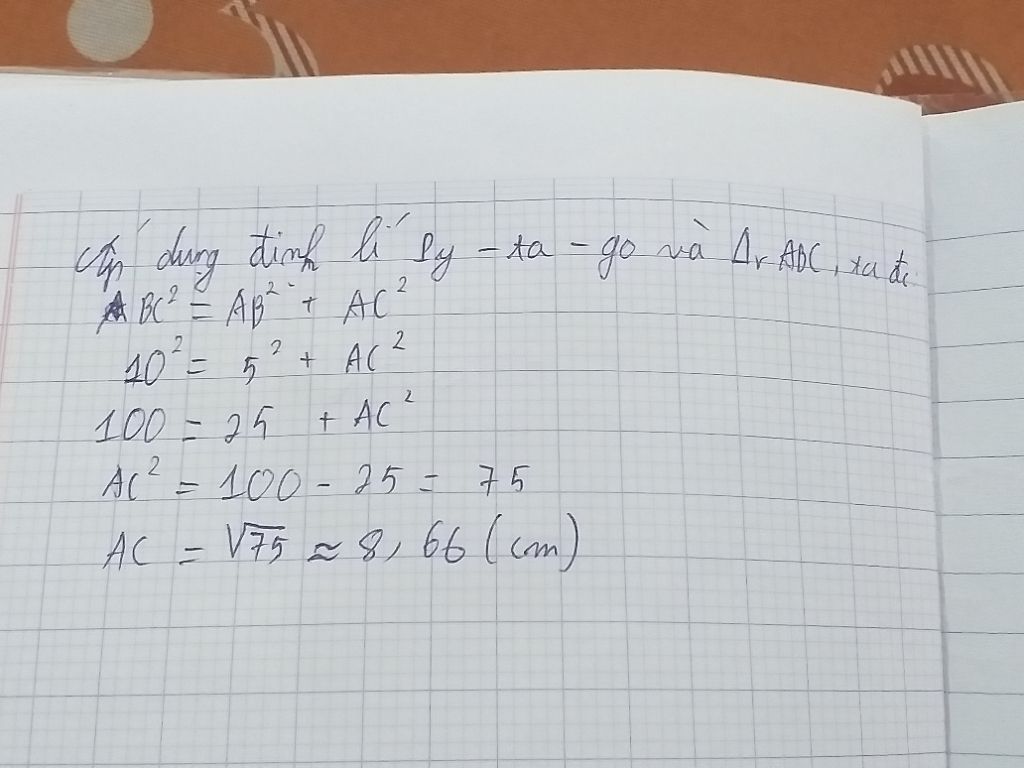 Áp dụng định lí Py-ta-go và Δv ABC, ta đc
BC² = AB² + AC²
10² = 5² + AC²
100 = 25 + AC²
AC² = 100 - 25 = 75
AC = √75 ≈ 8,66 (cm)